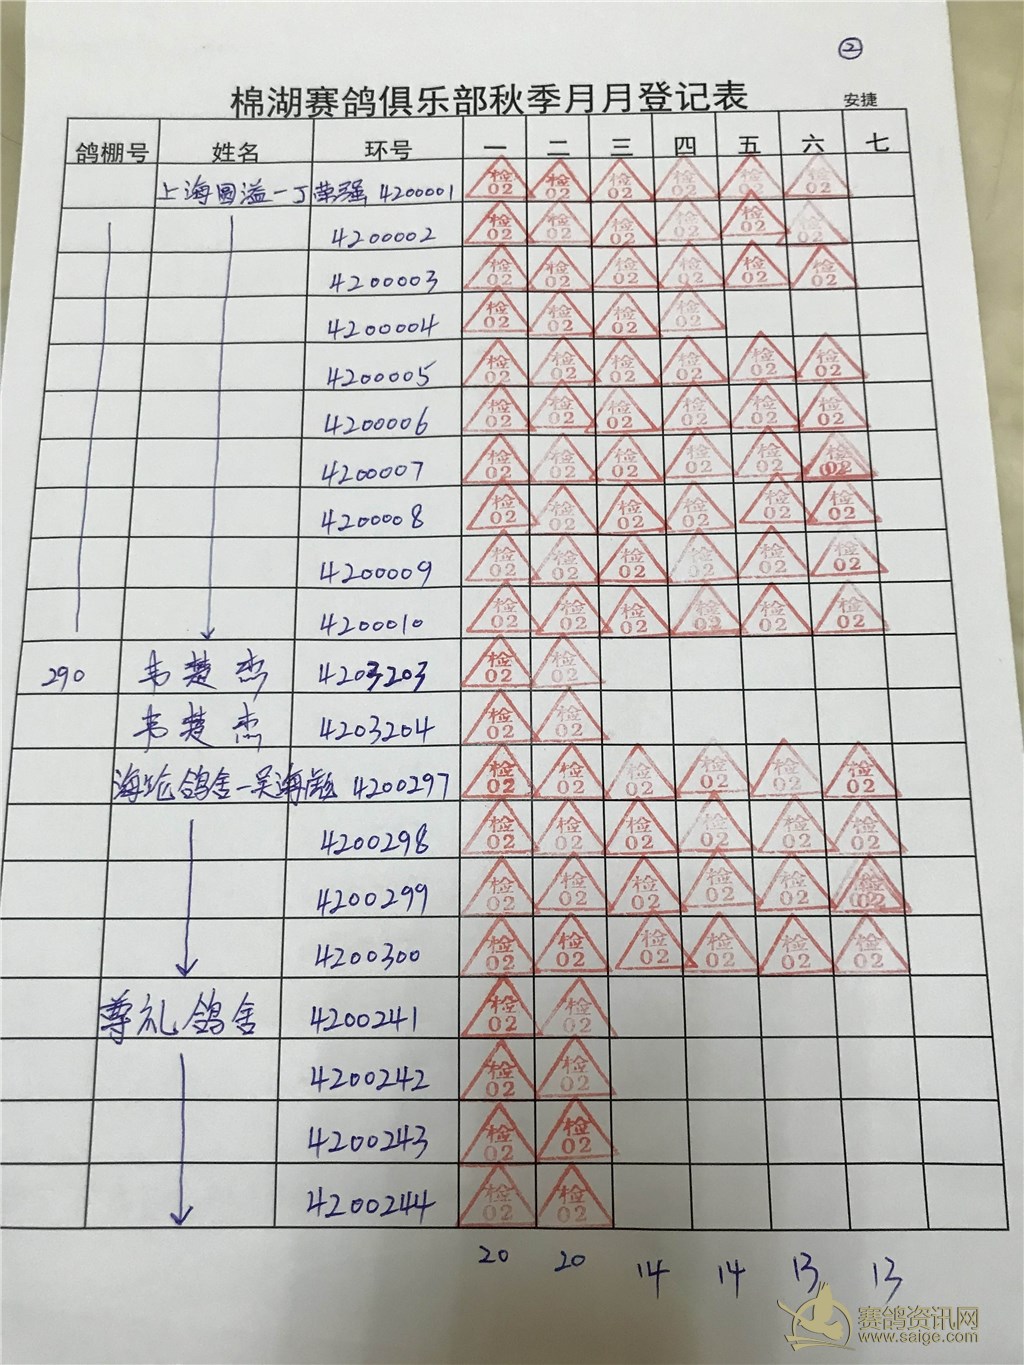 ②
棉湖赛鸽俱乐部秋季月月登记表
安捷
鸽棚号 姓名 环号 一 二 三 四 五 六 七
上海国溢一丁荣强 4200001 检02 检02 检02 检02 检02 检02
4200002 检02 检02 检02 检02 检02 检02
4200003 检02 检02 检02 检02 检02 检02
4200004 检02 检02 检02 检02
4200005 检02 检02 检02 检02 检02 检02
4200006 检02 检02 检02 检02 检02 检02
4200007 检02 检02 检02 检02 检02 检02
4200008 检02 检02 检02 检02 检02 检02
4200009 检02 检02 检02 检02 检02 检02
4200010 检02 检02 检02 检02 检02 检02
290 韦楚杰 4203203 检02 检02
韦楚杰 4203204 检02 检02
海纶鸽舍一吴海彪 4200297 检02 检02 检02 检02 检02 检02
4200298 检02 检02 检02 检02 检02 检02
4200299 检02 检02 检02 检02 检02 检02
4200300 检02 检02 检02 检02 检02 检02
尊礼鸽舍 4200241 检02 检02
4200242 检02 检02
4200243 检02 检02
4200244 检02 检02
20 20 14 14 13 13
赛鸽资讯网
www.saige.com